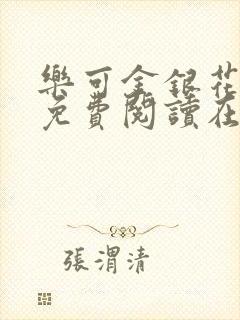 樂可金銀花
免費閱讀在
張渭清